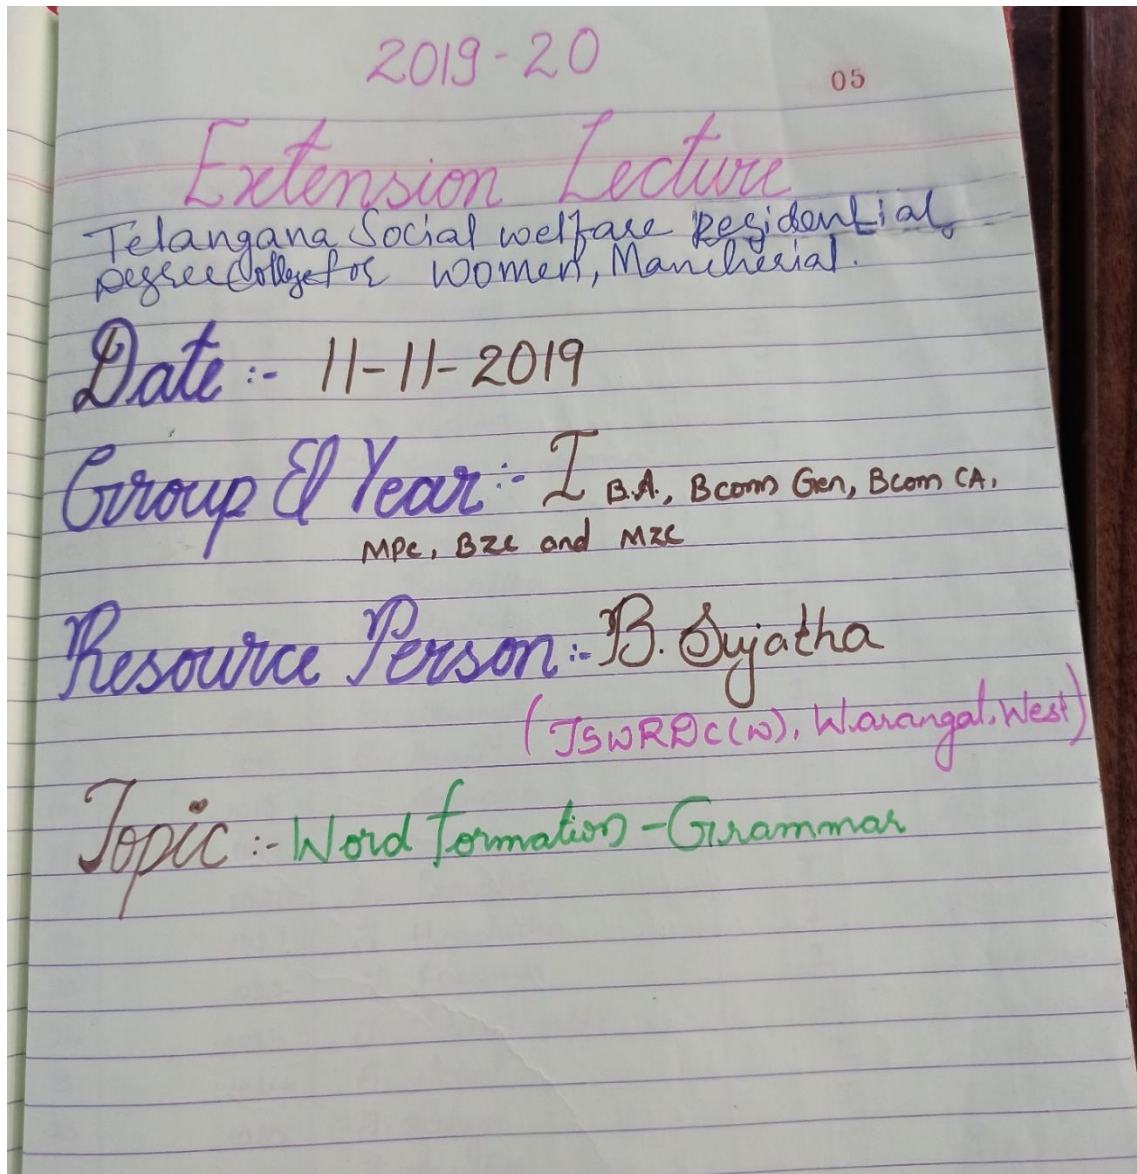 2019-20
05
Extension Lecture
Telangana Social welfare Residential
Degree College for Women, Mancherial.
Date :- 11-11-2019
Group & Year :- I B.A., Bcom Gen, Bcom CA,
MPC, BZC and MZC
Resource Person :- B. Sujatha
(TSWRDC(W), Warangal, West)
Topic :- Word formation - Grammar